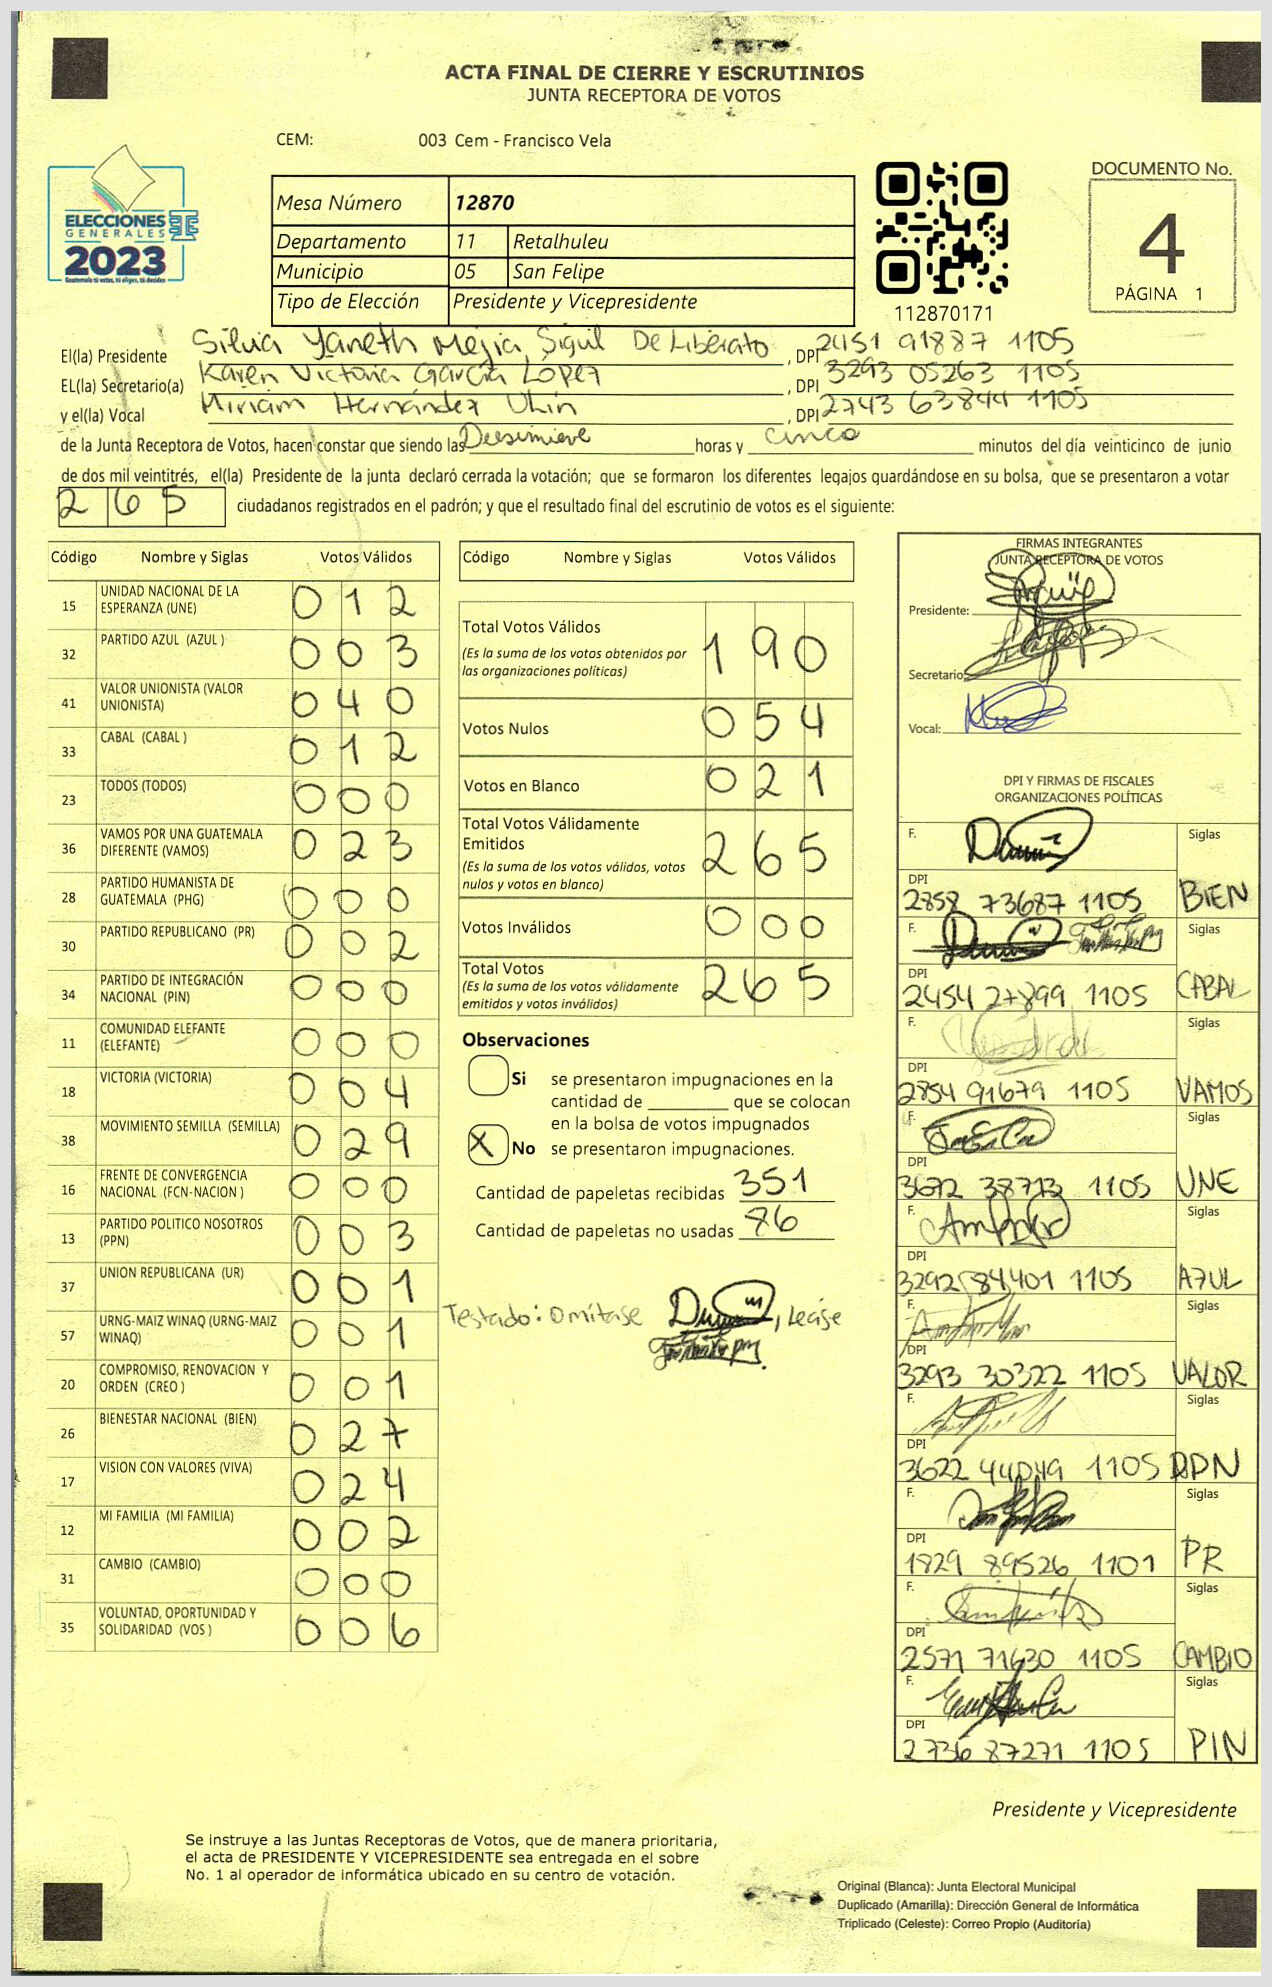 ACTA FINAL DE CIERRE Y ESCRUTINIOS
JUNTA RECEPTORA DE VOTOS
CEM: 003 Cem - Francisco Vela
ELECCIONES
GENERALES
2023
Guatemala tú votas, tú eliges, tú decides
Mesa Número 12870
Departamento 11 Retalhuleu
Municipio 05 San Felipe
Tipo de Elección Presidente y Vicepresidente
112870171
DOCUMENTO No.
4
PÁGINA 1
El(la) Presidente Silvia Yaneth Mejia Sigüil De Liberato, DPI 2451 91887 1105
EL(la) Secretario(a) Karen Victoria García López, DPI 3293 05263 1105
y el(la) Vocal Miriam Hernández, DPI 2743 63844 1105
de la Junta Receptora de Votos, hacen constar que siendo las horas y cinco minutos del día veinticinco de junio
de dos mil veintitrés, el(la) Presidente de la junta declaró cerrada la votación; que se formaron los diferentes legajos guardándose en su bolsa, que se presentaron a votar
265 ciudadanos registrados en el padrón; y que el resultado final del escrutinio de votos es el siguiente:
Código Nombre y Siglas Votos Válidos
15 UNIDAD NACIONAL DE LA ESPERANZA (UNE) 012
32 PARTIDO AZUL (AZUL ) 003
41 VALOR UNIONISTA (VALOR UNIONISTA) 040
33 CABAL (CABAL ) 012
23 TODOS (TODOS) 000
36 VAMOS POR UNA GUATEMALA DIFERENTE (VAMOS) 023
28 PARTIDO HUMANISTA DE GUATEMALA (PHG) 000
30 PARTIDO REPUBLICANO (PR) 002
34 PARTIDO DE INTEGRACIÓN NACIONAL (PIN) 000
11 COMUNIDAD ELEFANTE (ELEFANTE) 000
18 VICTORIA (VICTORIA) 004
38 MOVIMIENTO SEMILLA (SEMILLA) 029
16 FRENTE DE CONVERGENCIA NACIONAL (FCN-NACION ) 000
13 PARTIDO POLITICO NOSOTROS (PPN) 003
37 UNION REPUBLICANA (UR) 001
57 URNG-MAIZ WINAQ (URNG-MAIZ WINAQ) 001
20 COMPROMISO, RENOVACION Y ORDEN (CREO ) 001
26 BIENESTAR NACIONAL (BIEN) 027
17 VISION CON VALORES (VIVA) 024
12 MI FAMILIA (MI FAMILIA) 002
31 CAMBIO (CAMBIO) 000
35 VOLUNTAD, OPORTUNIDAD Y SOLIDARIDAD (VOS ) 006
Código Nombre y Siglas Votos Válidos
Total Votos Válidos 190
(Es la suma de los votos obtenidos por
las organizaciones políticas)
Votos Nulos 054
Votos en Blanco 021
Total Votos Válidamente
Emitidos 265
(Es la suma de los votos válidos, votos
nulos y votos en blanco)
Votos Inválidos 000
Total Votos 265
(Es la suma de los votos válidamente
emitidos y votos inválidos)
Observaciones
Si se presentaron impugnaciones en la
cantidad de ________ que se colocan
en la bolsa de votos impugnados
X No se presentaron impugnaciones.
Cantidad de papeletas recibidas 351
Cantidad de papeletas no usadas 86
Testado: Omítase , Lease
FIRMAS INTEGRANTES
JUNTA RECEPTORA DE VOTOS
Presidente:
Secretario:
Vocal:
DPI Y FIRMAS DE FISCALES
ORGANIZACIONES POLÍTICAS
F. Siglas
DPI
2858 73687 1105 BIEN
F. Siglas
DPI
2454 27899 1105 CABAL
F. Siglas
DPI
2854 91679 1105 VAMOS
F. Siglas
DPI
3672 38713 1105 UNE
F. Siglas
DPI
3292 84401 1105 AZUL
F. Siglas
DPI
3293 30322 1105 VALOR
F. Siglas
DPI
3622 44049 1105 PPN
F. Siglas
DPI
1829 89526 1101 PR
F. Siglas
DPI
2571 71630 1105 CAMBIO
F. Siglas
DPI
2736 87271 1105 PIN
Presidente y Vicepresidente
Se instruye a las Juntas Receptoras de Votos, que de manera prioritaria,
el acta de PRESIDENTE Y VICEPRESIDENTE sea entregada en el sobre
No. 1 al operador de informática ubicado en su centro de votación.
Original (Blanca): Junta Electoral Municipal
Duplicado (Amarilla): Dirección General de Informática
Triplicado (Celeste): Correo Propio (Auditoría)